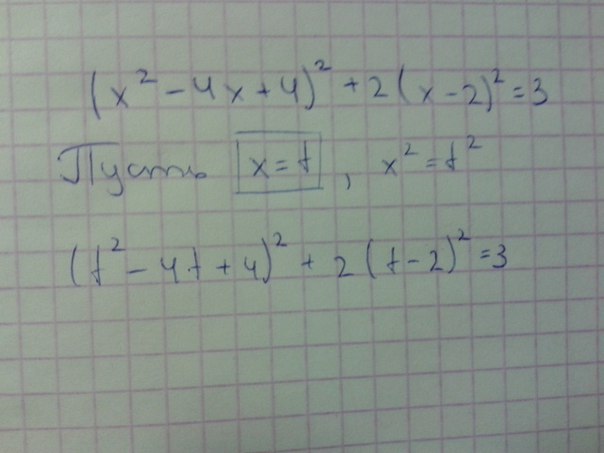 (x² - 4x + 4)² + 2(x - 2)² = 3
Пусть x = t, x² = t²
(t² - 4t + 4)² + 2(t - 2)² = 3